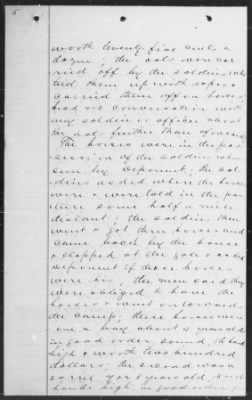 5
worth twenty five cents a
dozen; the oats were car
ried off by the soldiers who
tied them up with ropes &
carried them off on horses;
had no conversation with
any soldier or officer about
the oats further than
The horses were in the pas
session of the soldiers when
seen by deponent; the sol
diers asked where the horses
were & were told in the pas
ture some half a mile
distant; the soldiers then
went & got them horses and
came back by the house
& stopped at the gate & asked
deponent if these horses
were his; the men said they
were obliged to have the
horses & went on toward
the camp; these horses were
one a bay about 4 years old
in good order, sound, 16 hands
high & worth two hundred
dollars; the second was a
sorrel 7 or 8 years old, 15 or 16
hands high, in good order for